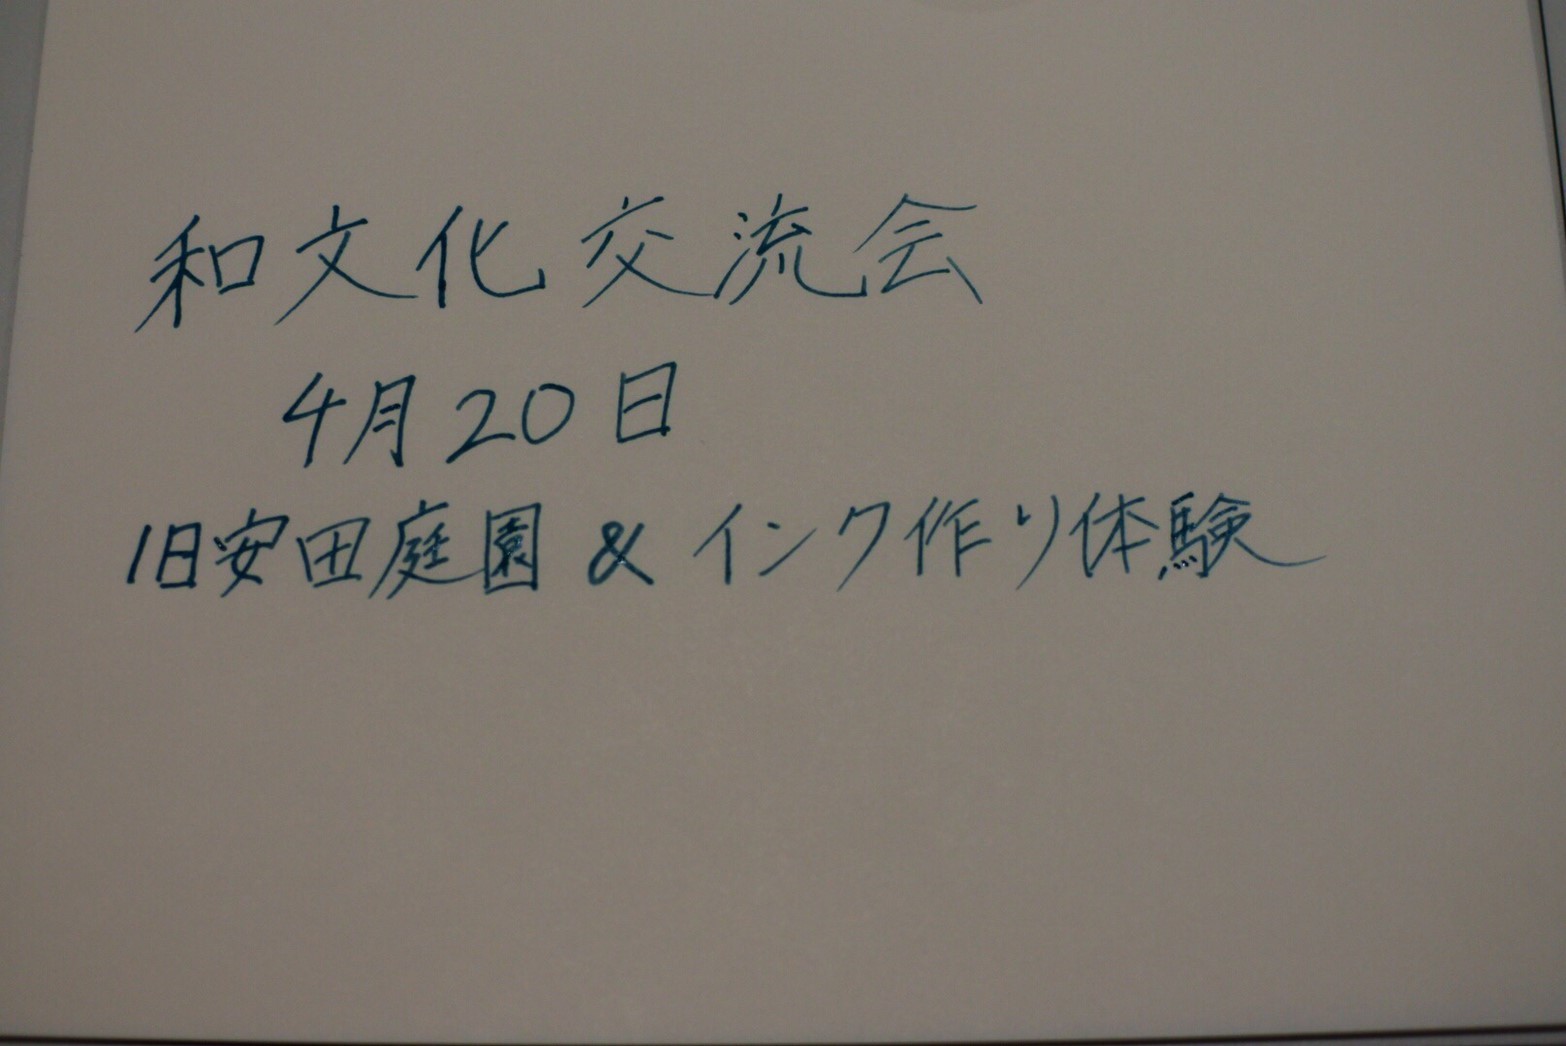 和文化交流会
4月20日
旧安田庭園 & インク作り体験